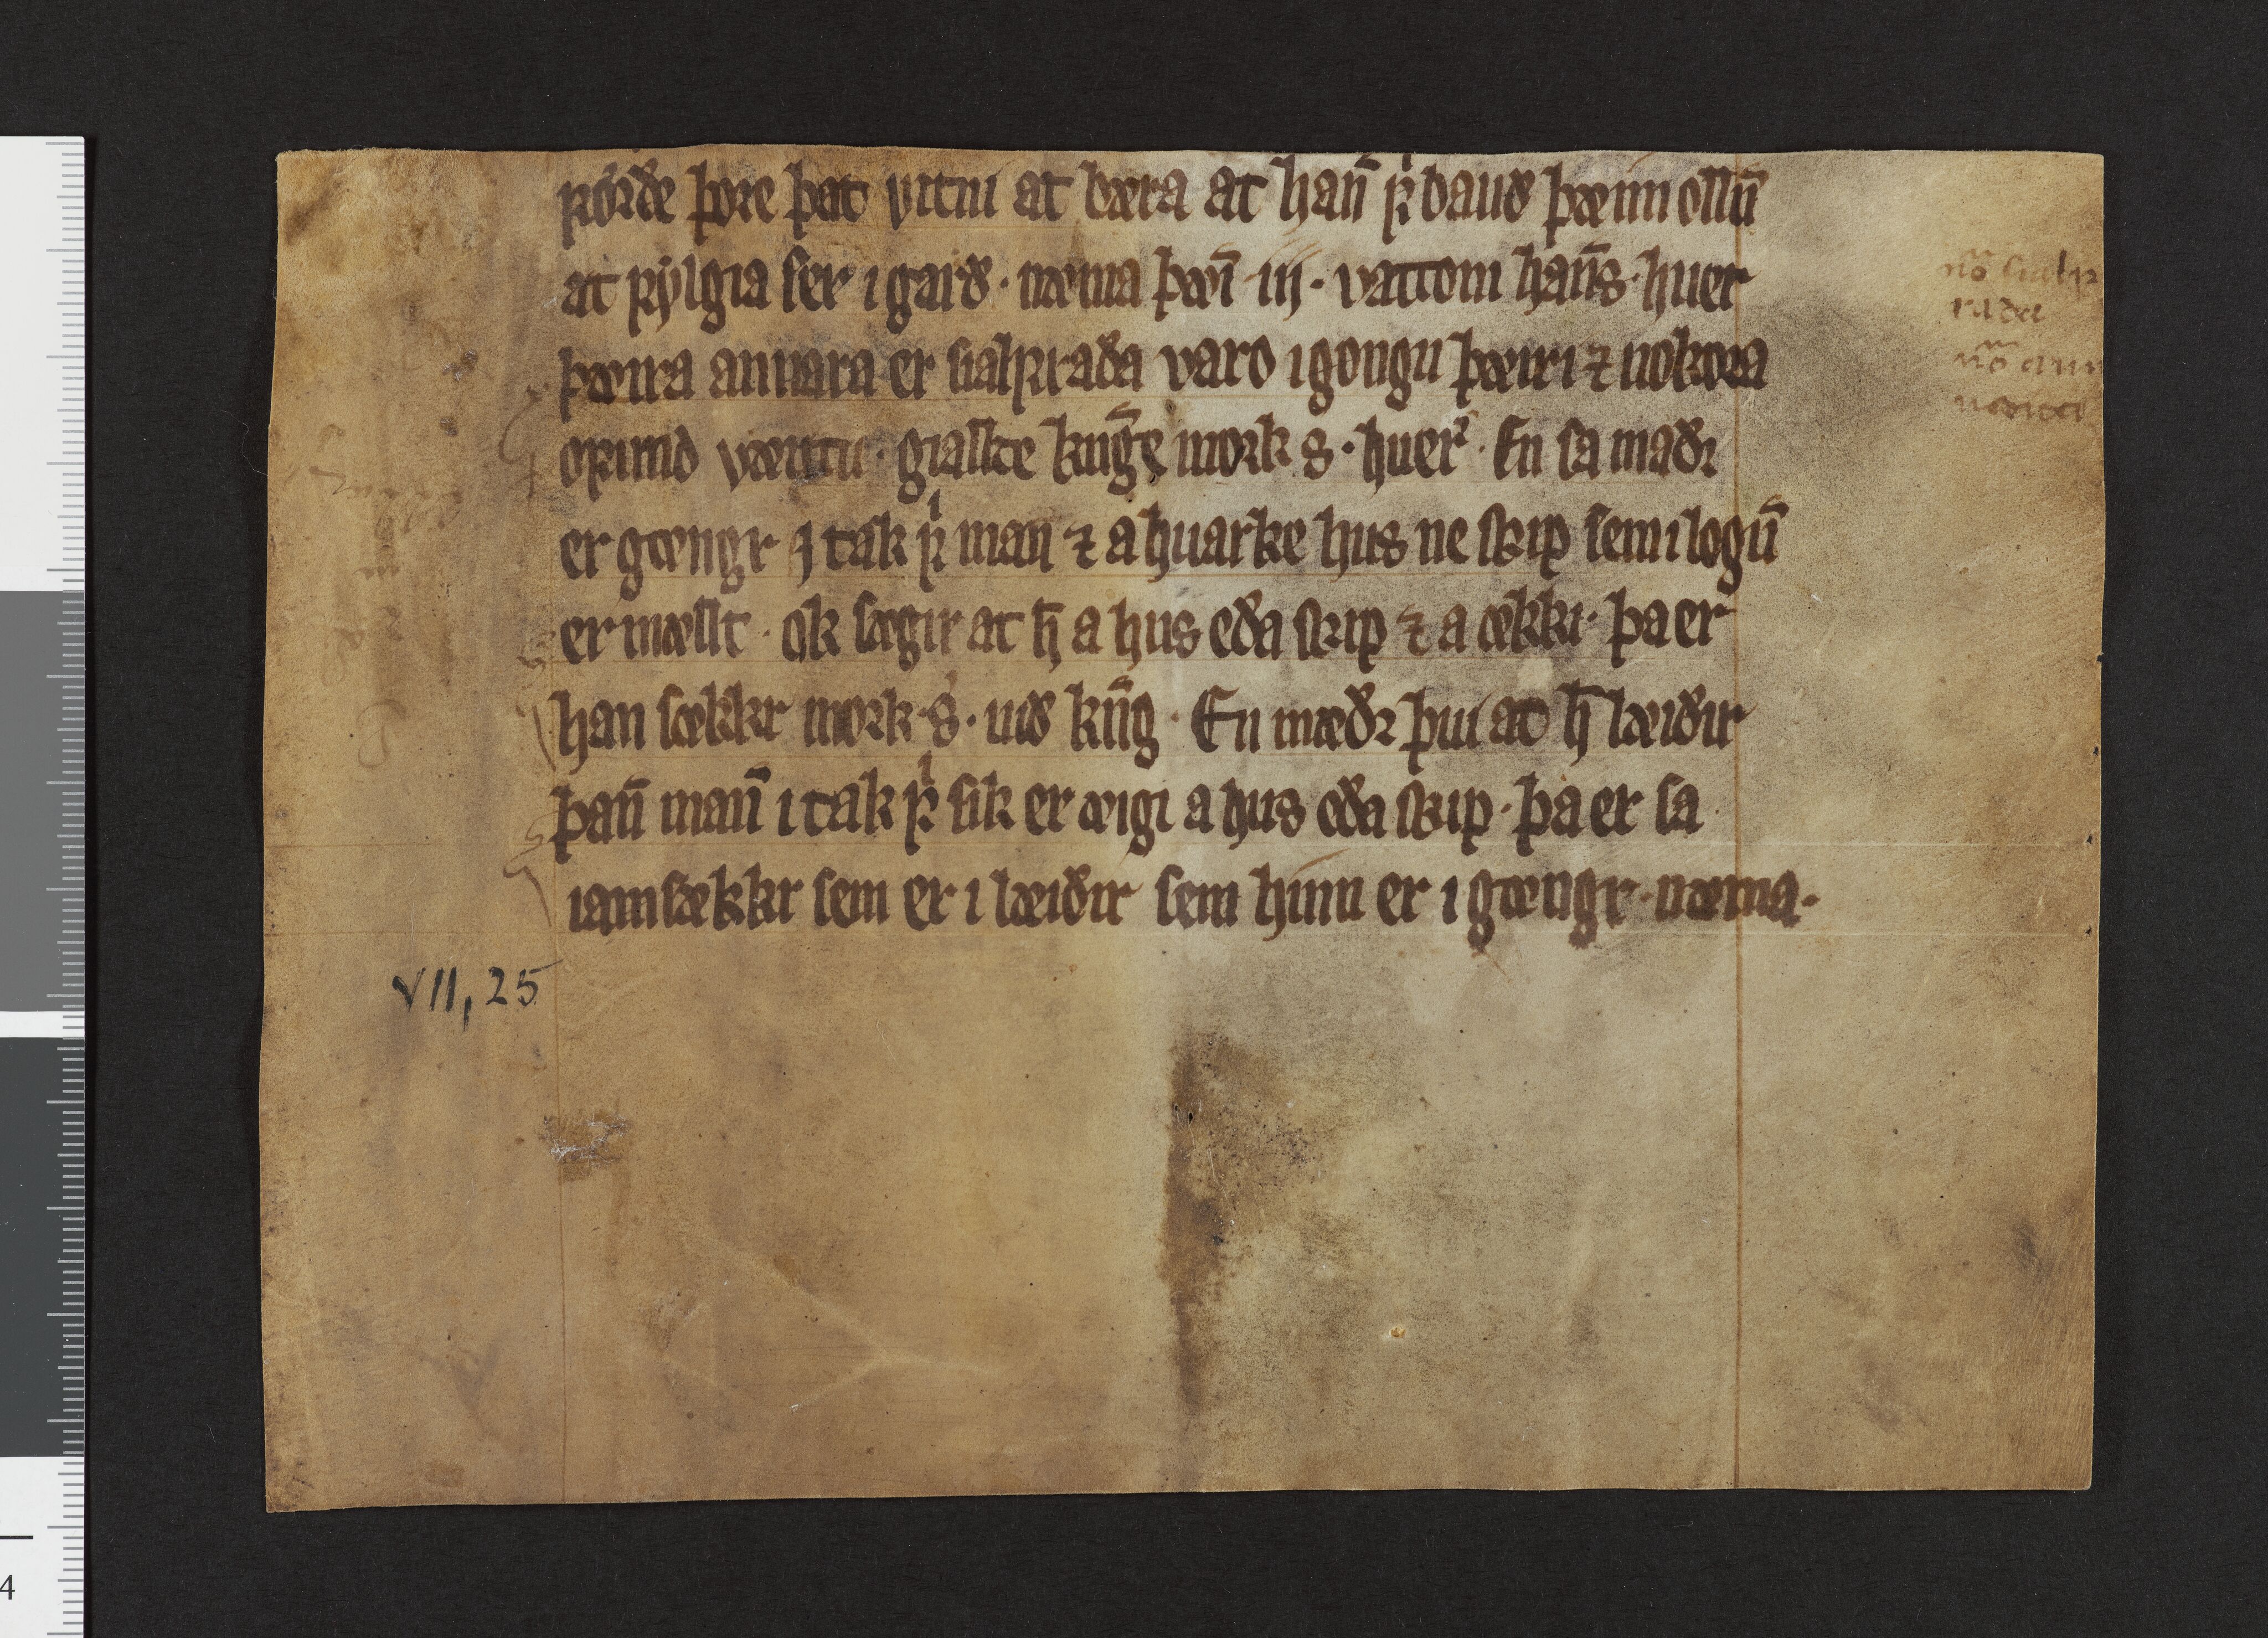 ꝼorðe þore þat vitni at bæra at han̄ ꝼͥ bauð þæim ollū
at ꝼylgia ser i garð · næma þæī · iij · vattom han̄s · huer
þæira annara er sialꝼraða varo i gongu þæiri ⁊ nokora
oꝼund væittu · giallde kn̄ge mork s · huerꝛ · En sa maðꝛ
er gængr j tak ꝼͥ man ⁊ a huarke hus ne skip sem i logū
er mællt · ok sægir at h̄ a hus eða skip ⁊ a ækki · þa er
han sækkr mork · s · uið kn̄g · En mæðꝛ þui at h̄ læiðir
þan̄ man̄ i tak ꝼͥ sik er æigi a hus eða skip · þa er sa
iamsækkr sem er i læiðir sem hinn er i gængr · næma ·
nō sialꝼ
raða
nō ann
VII, 25